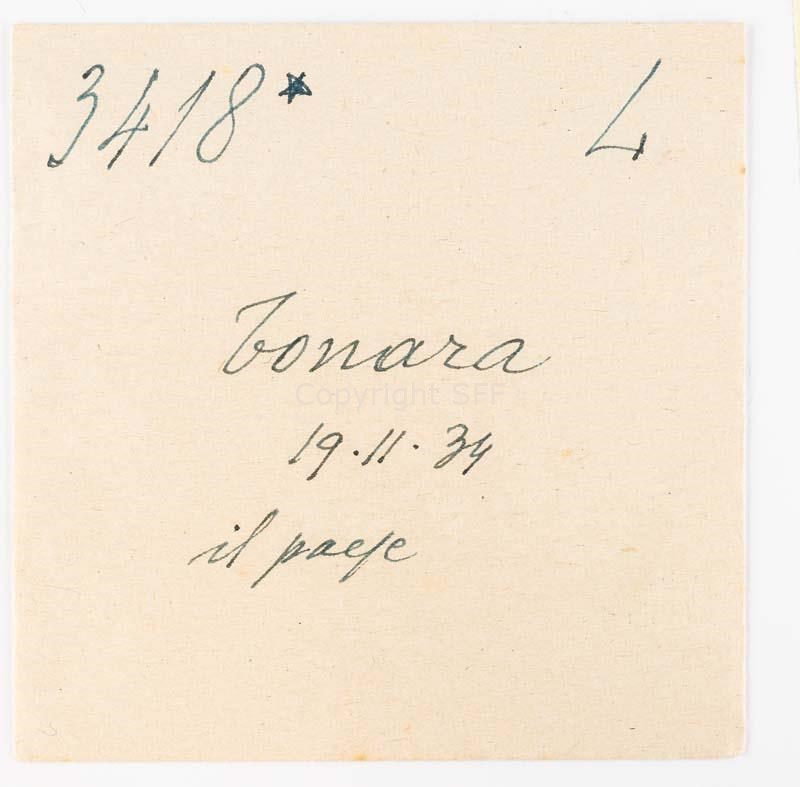 3418* L
Tonara
Copyright SFF
19.11.34
il paese